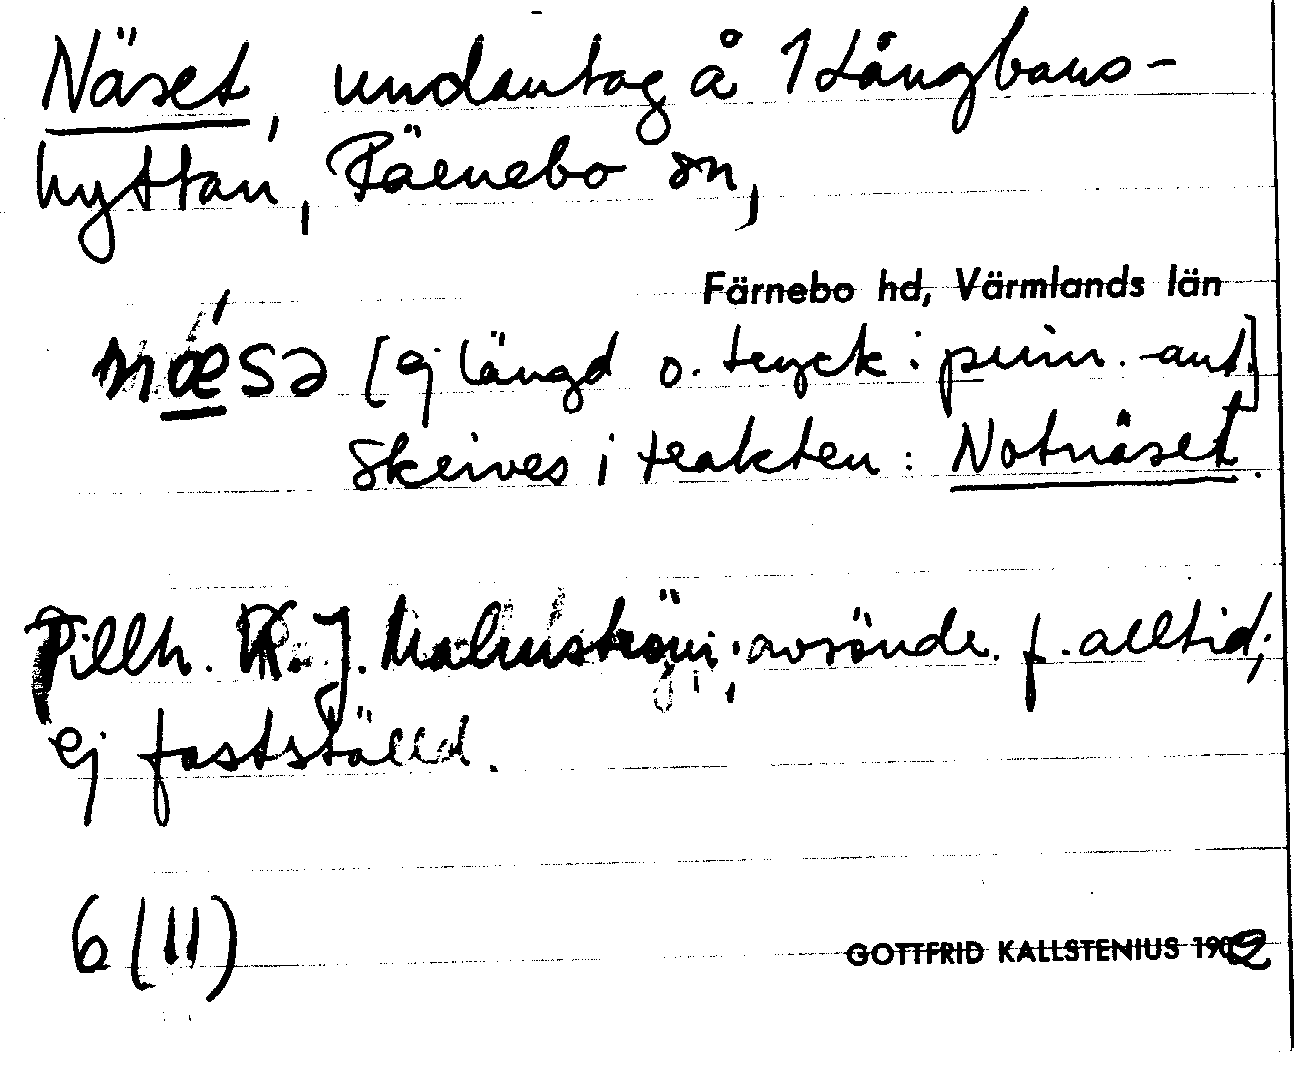 Näset, undantag å 1 Långbans-
hyttan, Färnebo sn,
Färnebo hd, Värmlands län
næ´sə [ej längd o. tryck i prim.-ant.]
Skrives i trakten: Notnäset.
Tillh. K. J. Malmström; avsöndr. f. alltid;
ej fastställd.
6 (11)
GOTTFRID KALLSTENIUS 1902